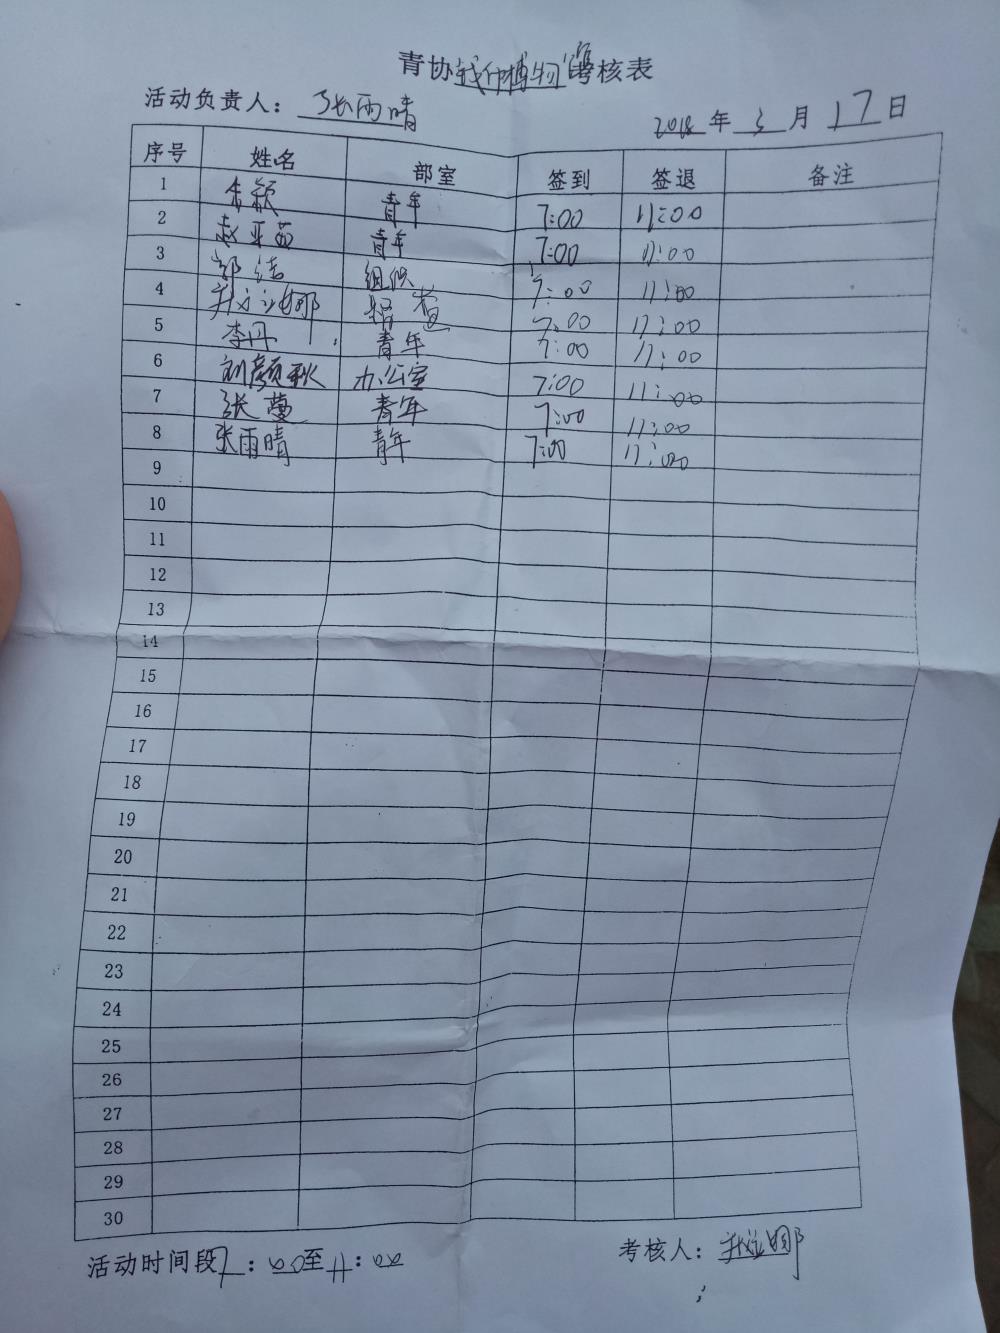 青协钱币博物馆考核表
活动负责人：张雨晴
2018年3月17日
序号 姓名 部室 签到 签退 备注
1 朱颖 青年 7:00 11:00
2 赵亚茹 青年 7:00 11:00
3 郭洁 组织 7:00 11:00
4 7:00 11:00
5 李丹 青年 7:00 11:00
6 刘颜秋 办公室 7:00 11:00
7 张蔓 青年 7:00 11:00
8 张雨晴 青年 7:00 11:00
9
10
11
12
13
14
15
16
17
18
19
20
21
22
23
24
25
26
27
28
29
30
活动时间段7:00至11:00
考核人：